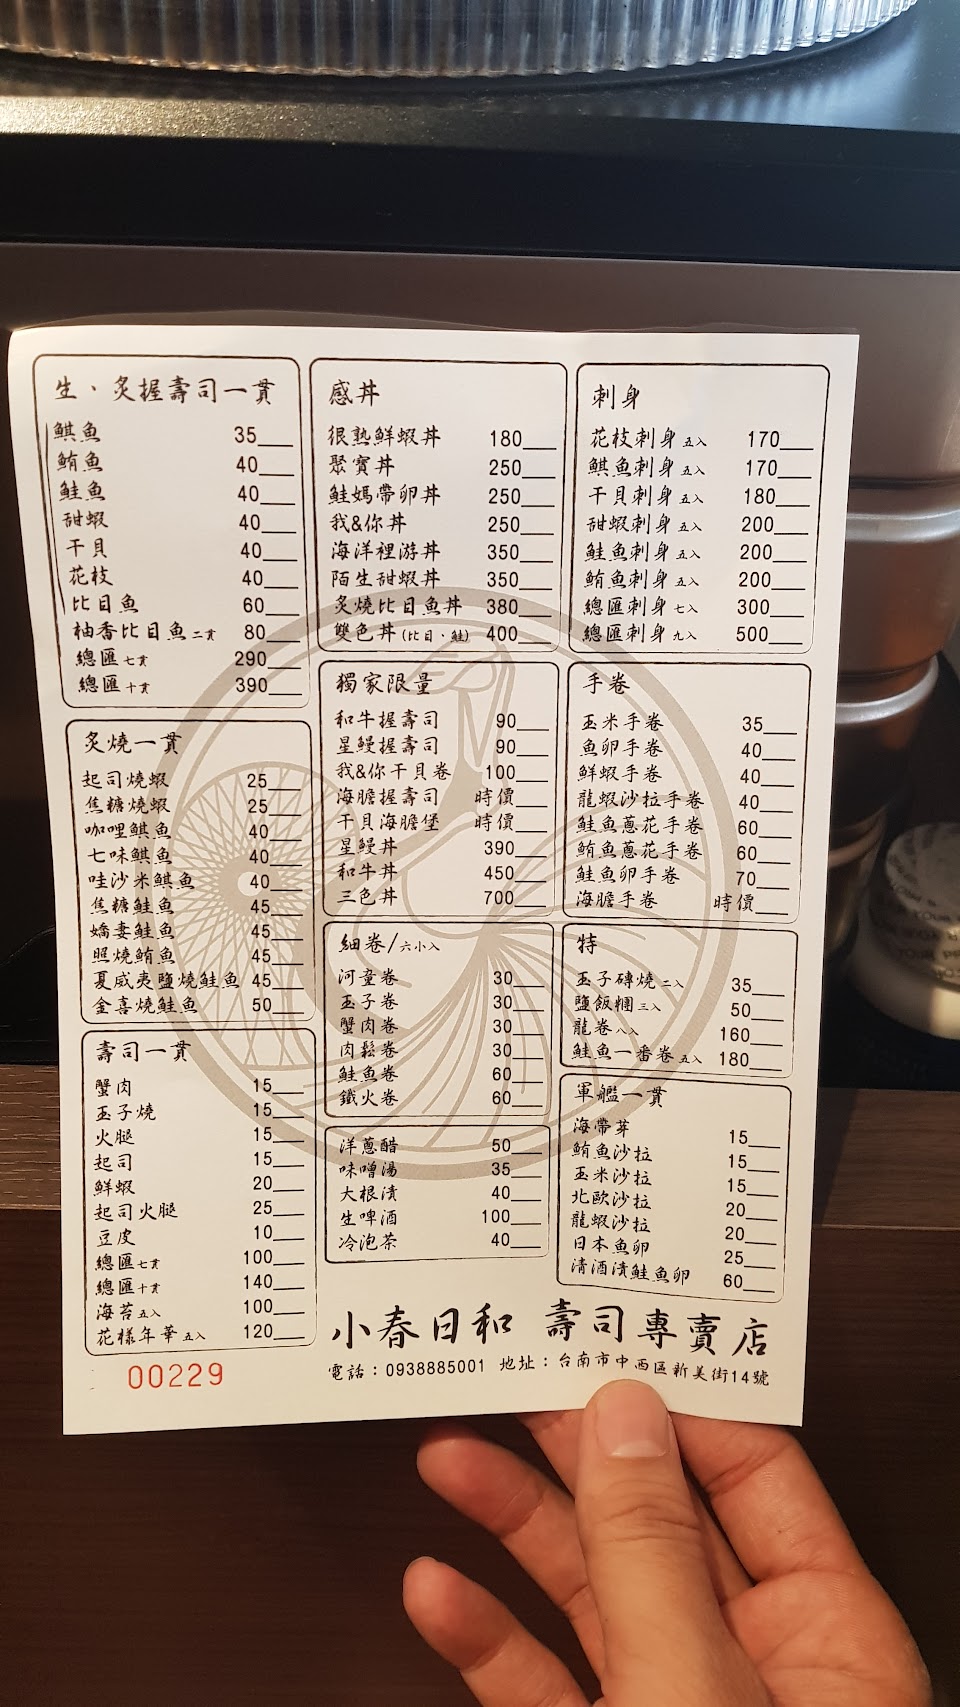 生、炙握壽司一貫
鯕魚 35
鮪魚 40
鮭魚 40
甜蝦 40
干貝 40
花枝 40
比目魚 60
柚香比目魚二貫 80
總匯七貫 290
總匯十貫 390
炙燒一貫
起司燒蝦 25
焦糖燒蝦 25
咖哩鯕魚 40
七味鯕魚 40
哇沙米鯕魚 40
焦糖鮭魚 45
嬌妻鮭魚 45
照燒鮪魚 45
夏威夷鹽燒鮭魚 45
金喜燒鮭魚 50
壽司一貫
蟹肉 15
玉子燒 15
火腿 15
起司 15
鮮蝦 20
起司火腿 25
豆皮 10
總匯七貫 100
總匯十貫 140
海苔五入 100
花樣年華五入 120
00229
感丼
很熟鮮蝦丼 180
聚寶丼 250
鮭媽帶卵丼 250
我&你丼 250
海洋裡游丼 350
陌生甜蝦丼 350
炙燒比目魚丼 380
雙色丼(比目、鮭) 400
獨家限量
和牛握壽司 90
星鰻握壽司 90
我&你干貝卷 100
海膽握壽司 時價
干貝海膽堡 時價
星鰻丼 390
和牛丼 450
三色丼 700
細卷/六小入
河童卷 30
玉子卷 30
蟹肉卷 30
肉鬆卷 30
鮭魚卷 60
鐵火卷 60
洋蔥醋 50
味噌湯 35
大根漬 40
生啤酒 100
冷泡茶 40
刺身
花枝刺身五入 170
鯕魚刺身五入 170
干貝刺身五入 180
甜蝦刺身五入 200
鮭魚刺身五入 200
鮪魚刺身五入 200
總匯刺身七入 300
總匯刺身九入 500
手卷
玉米手卷 35
魚卵手卷 40
鮮蝦手卷 40
龍蝦沙拉手卷 40
鮭魚蔥花手卷 60
鮪魚蔥花手卷 60
鮭魚卵手卷 70
海膽手卷 時價
特
玉子磚燒二入 35
鹽飯糰三入 50
龍卷八入 160
鮭魚一番卷五入 180
軍艦一貫
海帶芽 15
鮪魚沙拉 15
玉米沙拉 15
北歐沙拉 20
龍蝦沙拉 20
日本魚卵 25
清酒漬鮭魚卵 60
小春日和 壽司專賣店
電話：0938885001 地址：台南市中西區新美街14號